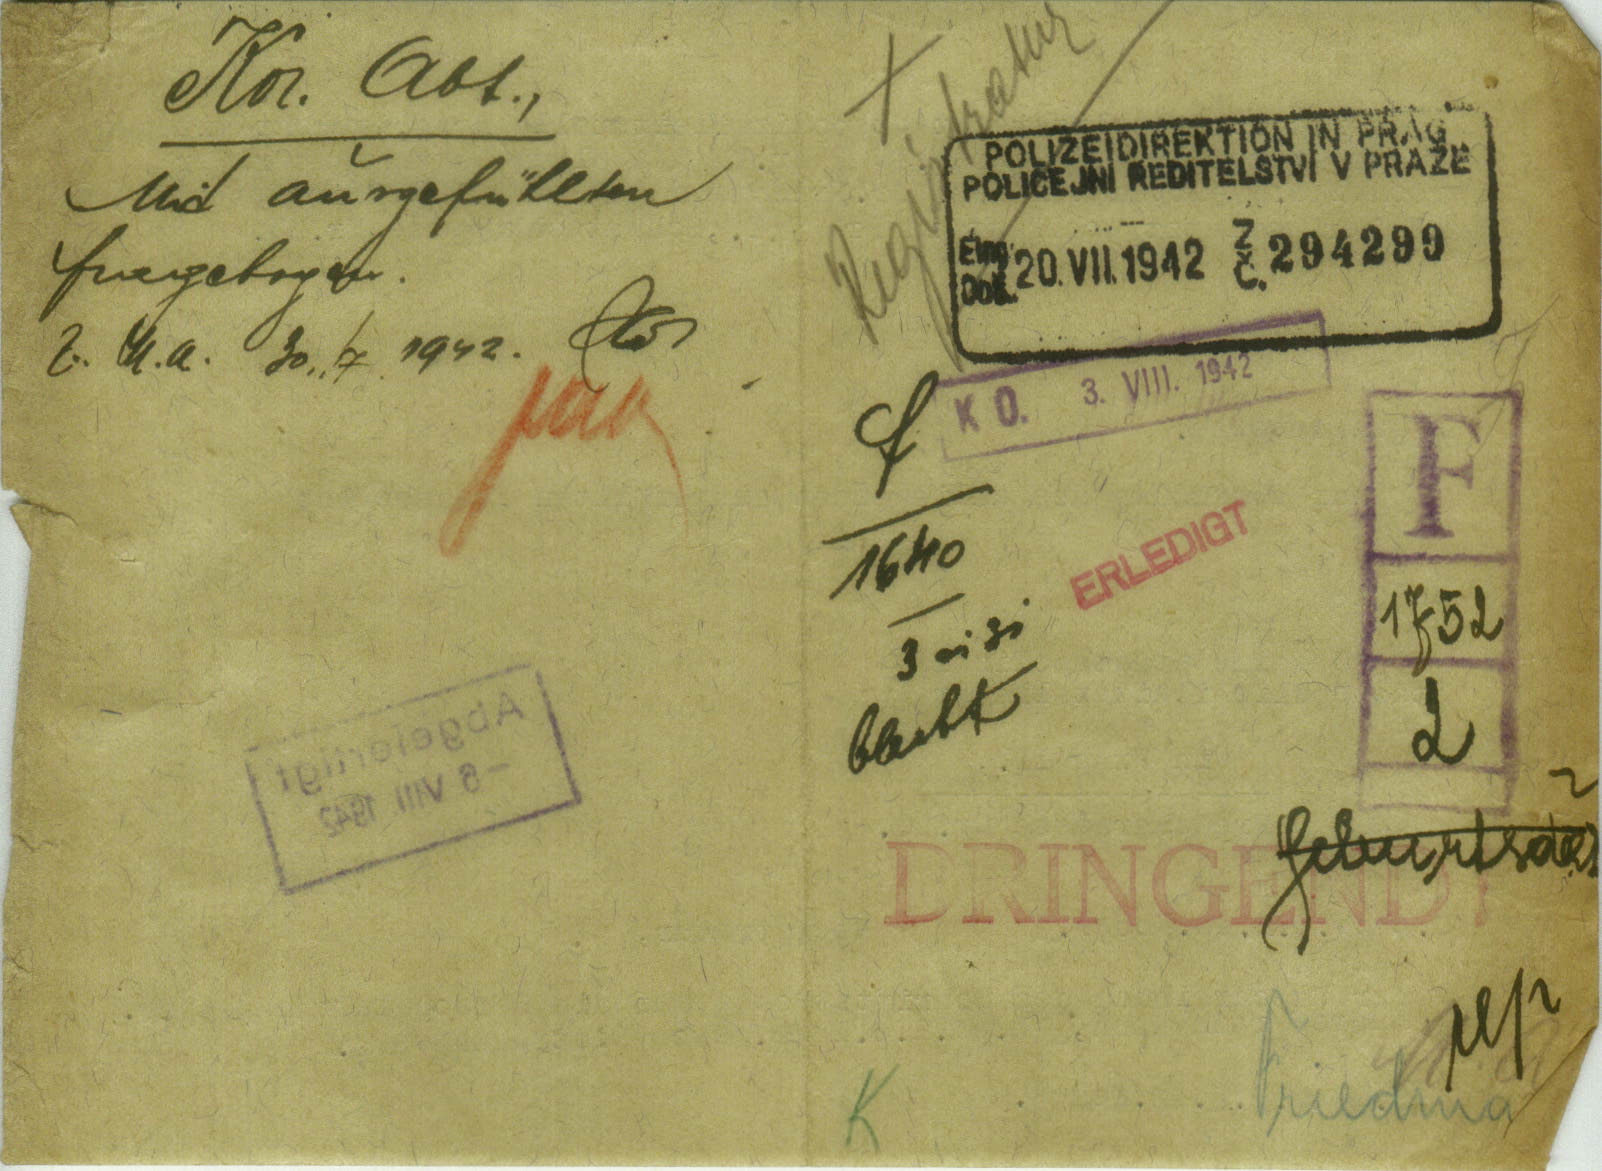 Kor. Abt.,
Mit ausgefüllten
Fragebogen.
Z. M.a. 30./7. 1942.
Abgefertigt
- 6 VIII. 1942
Registratur
POLIZEIDIREKTION IN PRAG
POLICEJNÍ ŘEDITELSTVÍ V PRAZE
Eing. Doš. 20. VII. 1942 Z. Č. 294299
K O. 3. VIII. 1942
F
1640
1752
2
ERLEDIGT
DRINGEND!
K
Friedma